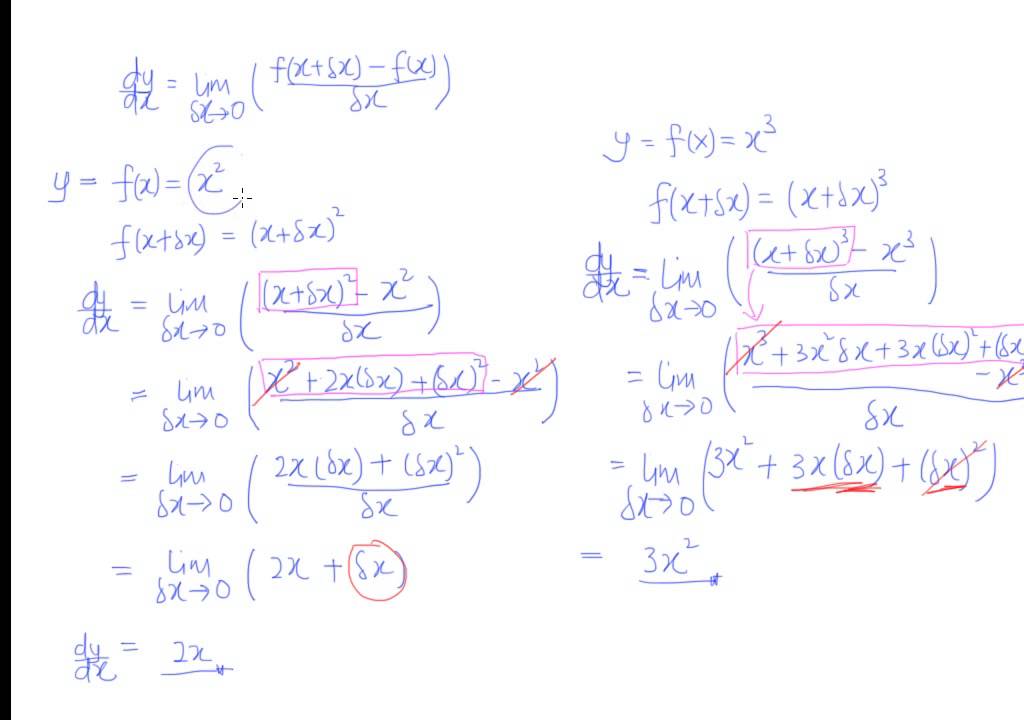 dy/dx = lim δx→0 ( (f(x+δx) − f(x)) / δx )
y = f(x) = x²
f(x+δx) = (x+δx)²
dy/dx = lim δx→0 ( ((x+δx)² − x²) / δx )
= lim δx→0 ( (x² + 2x(δx) + (δx)² − x²) / δx )
= lim δx→0 ( (2x(δx) + (δx)²) / δx )
= lim δx→0 ( 2x + δx )
dy/dx = 2x
y = f(x) = x³
f(x+δx) = (x+δx)³
dy/dx = lim δx→0 ( ((x+δx)³ − x³) / δx )
= lim δx→0 ( (x³ + 3x² δx + 3x(δx)² + (δx − x³ / δx
= lim δx→0 ( 3x² + 3x(δx) + (δx)² )
= 3x²